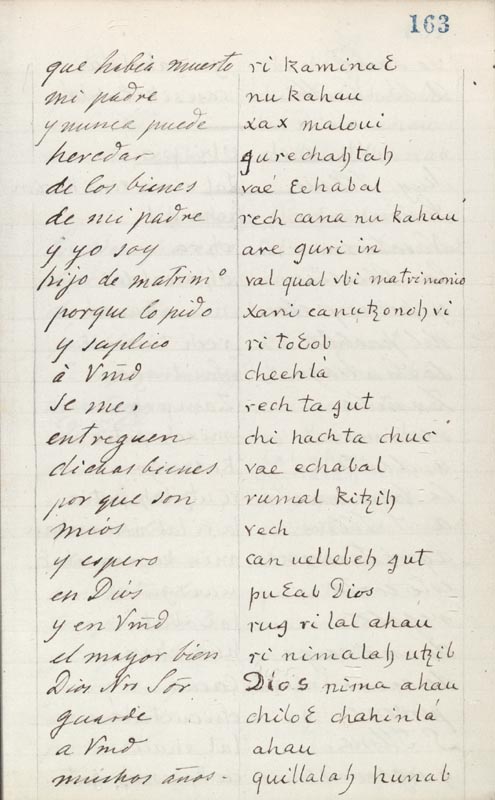 163
que habia muerto ri kaminaƐ
mi padre nu kahau
y nunca puede xax maloui
heredar gurechaḩtaḩ
de los bienes vaé Ɛchabal
de mi padre rech cana nu kahau
y yo soy are guri in
hijo de matrimº val qual vbi matrimonio
porque lo pido xavi canutƺonoḩ vi
y suplico ri toƐob
à Vm̃d cheehlá
se me. rech ta gut
entreguen chi hachta chuc
dichas bienes vae echabal
por que son rumal kitƺiḩ
mios vech
y espero can uellebeḩ gut
en Dios puƐab Dios
y en Vm̃d rug ri lal ahau
el mayor bien ri nimalaḩ utƺil
Dios Nro Sõr. Dios nima ahau
guarde chiloƐ chahinlá
a Vm̃d ahau
muchos años. quillalaḩ hunab